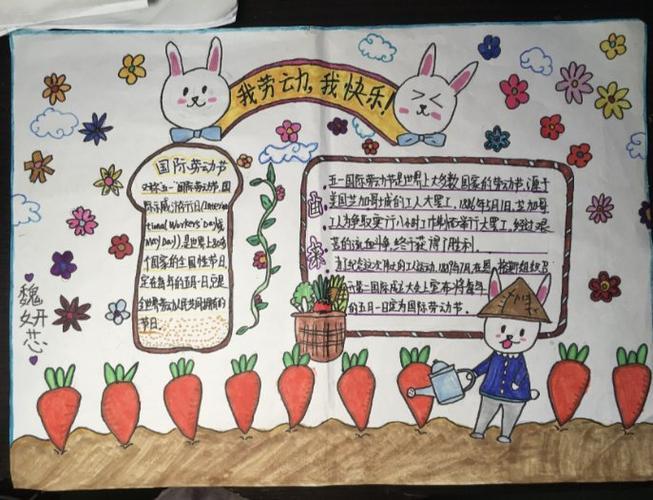 我劳动,我快乐!
国际劳动节
又称"五一国际劳动节,国
际示威游行日(Interna
tional Workers' Day或
May Day)),是世界上80多
个国家的全国性节日
定在每年的五月一日,它是
全世界劳动人民共同拥有的
节日.
由来
五一国际劳动节是世界上大多数国家的劳动节.源于
美国芝加哥城的工人大罢工,1886年5月1日,芝加哥
工人为争取实行八小时工作制而举行大罢工,经过艰
苦的流血斗争,终于获得了胜利.
为纪念这次伟大的工人运动,1889年7月,在恩格斯组织召
第二国际成立大会上宣布将每年
的五月一日定为国际劳动节.
魏妍芯